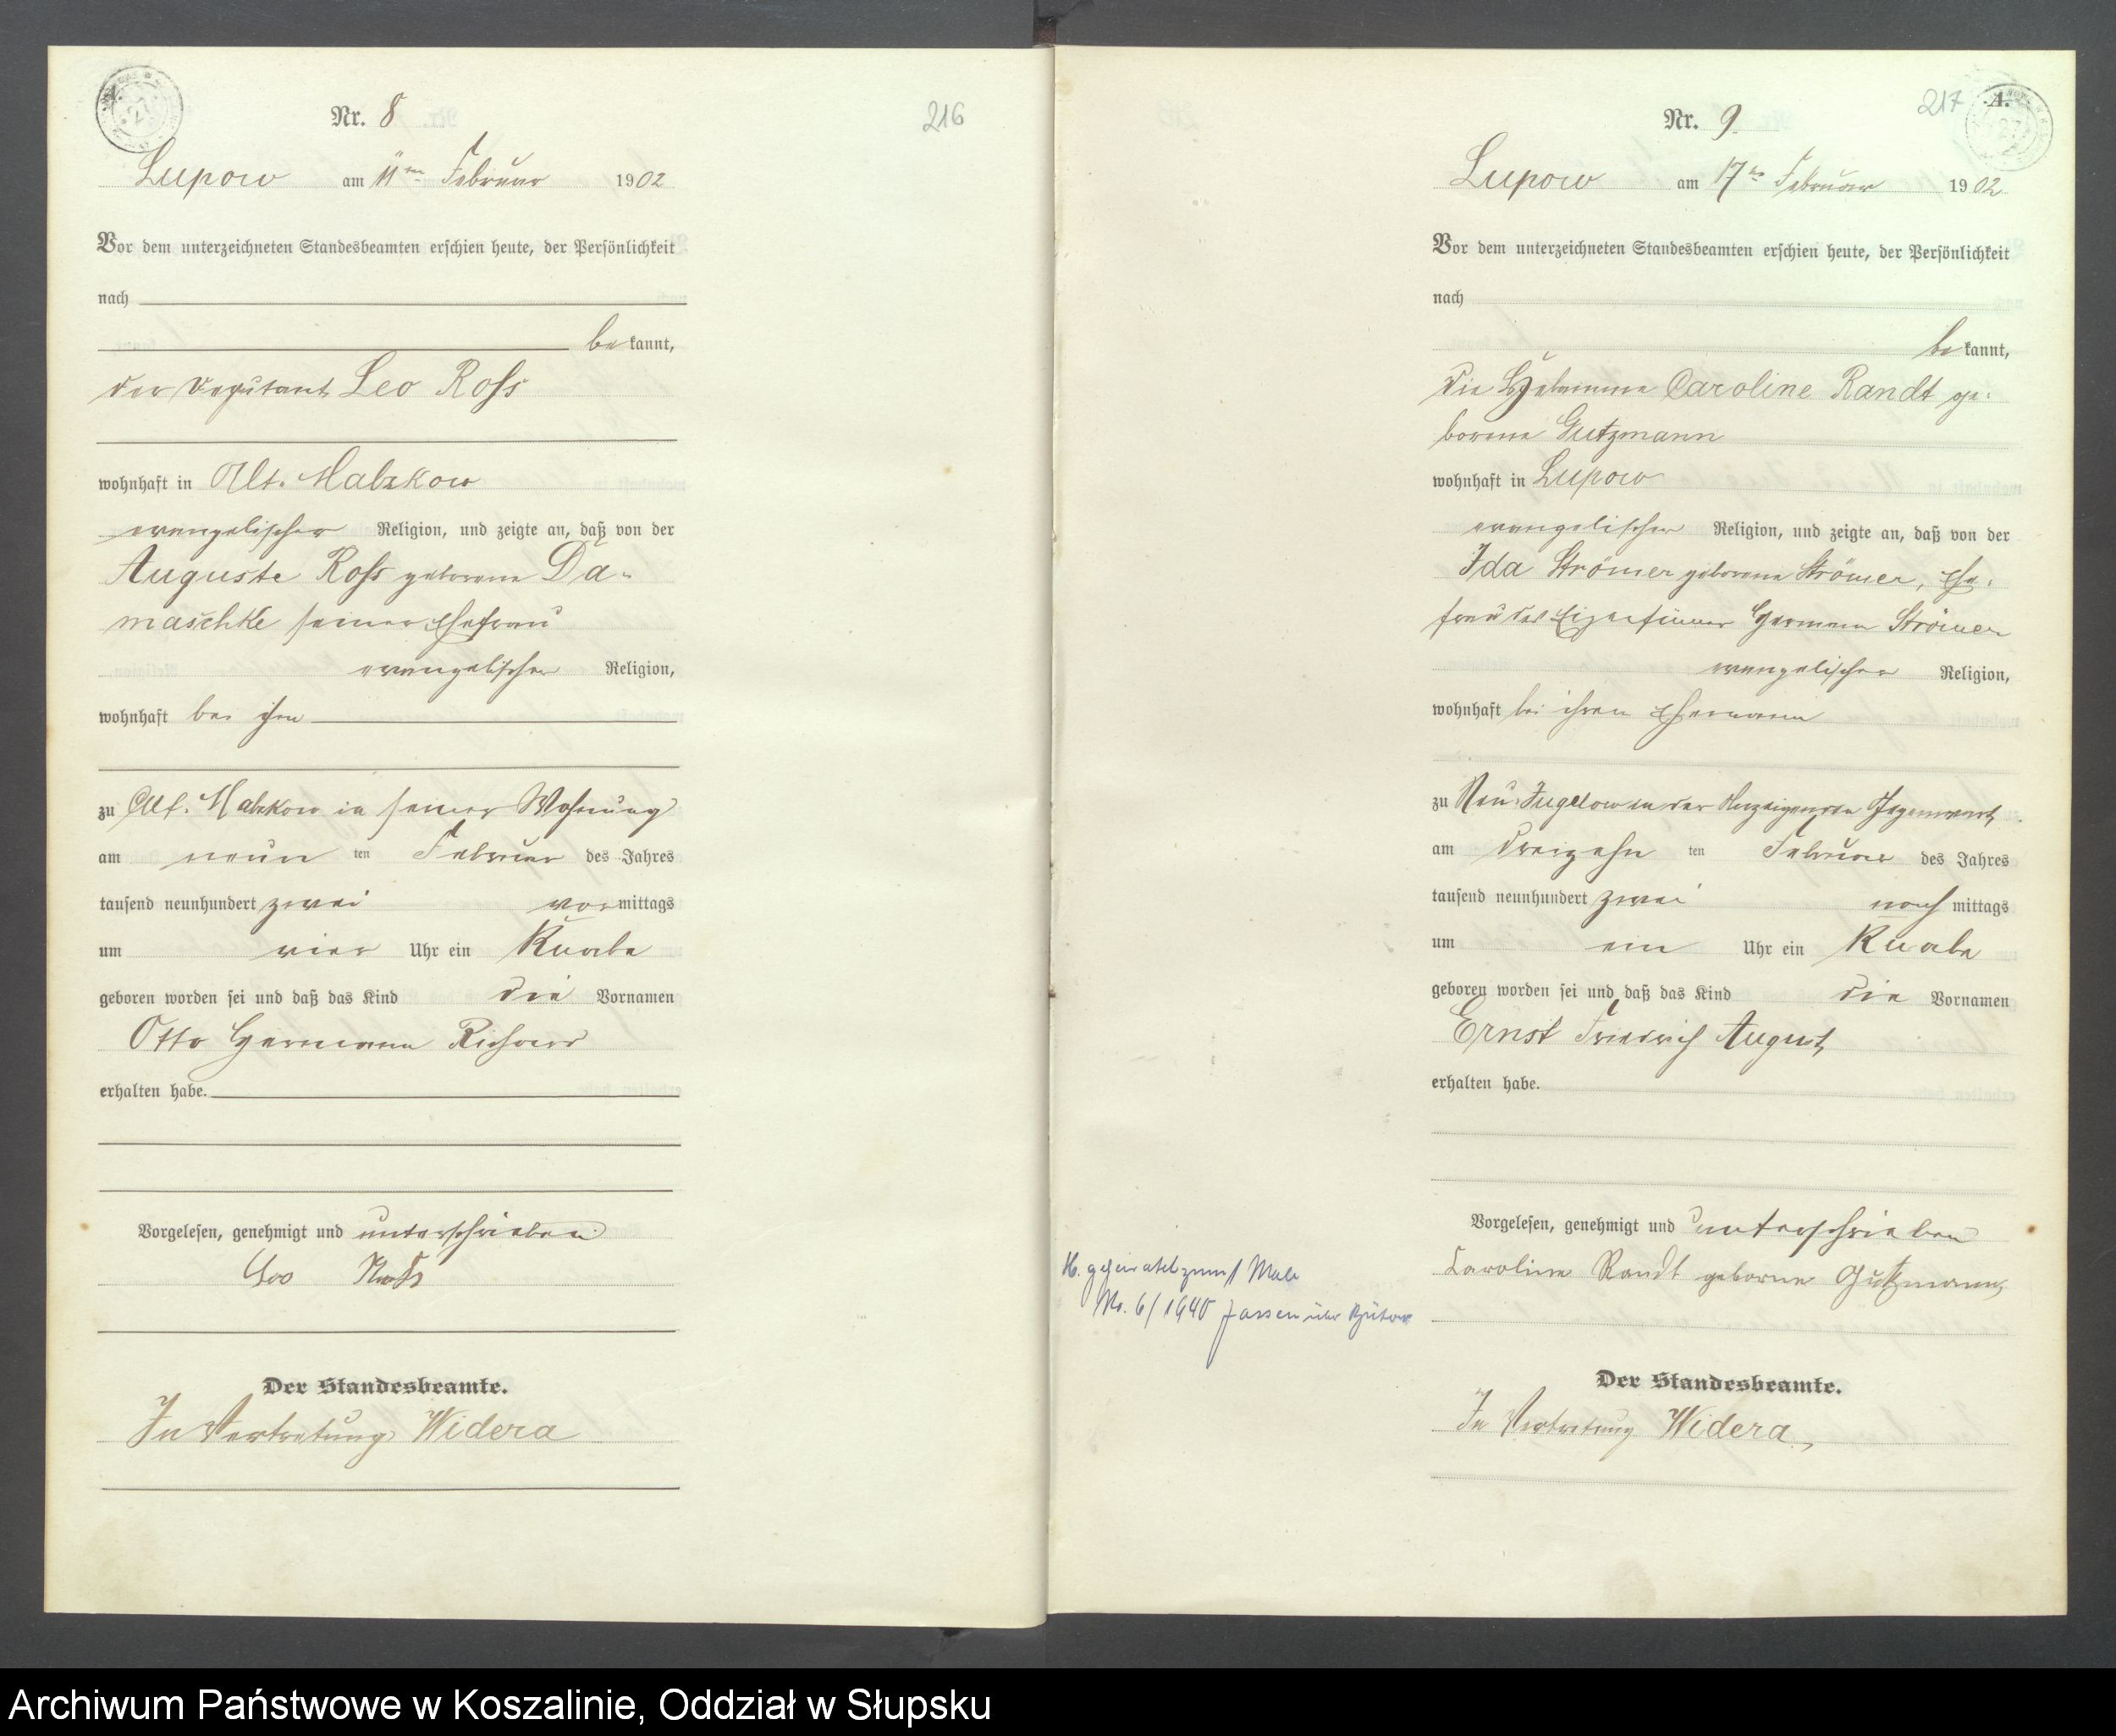 Nr. 8
216
Lupow am 11ten Februar 1902
Vor dem unterzeichneten Standesbeamten erschien heute, der Persönlichkeit
nach
bekannt,
der Deputant Leo Roß
wohnhaft in Alt-Malzkow
evangelischer Religion, und zeigte an, daß von der
Auguste Roß geborene Da-
maschke seiner Ehefrau
evangelischer Religion,
wohnhaft bei ihm
zu Alt-Malzkow in seiner Wohnung
am neunten Februar des Jahres
tausend neunhundert zwei vormittags
um vier Uhr ein Knabe
geboren worden sei und daß das Kind die Vornamen
Otto Hermann Richard
erhalten habe.
Vorgelesen, genehmigt und unterschrieben
Leo Roß
Der Standesbeamte.
In Vertretung Widera
217 A.
Nr. 9
Lupow am 17ten Februar 1902
Vor dem unterzeichneten Standesbeamten erschien heute, der Persönlichkeit
nach
bekannt,
die Hebamme Caroline Randt ge-
borene Gutzmann
wohnhaft in Lupow
evangelischer Religion, und zeigte an, daß von der
Ida Strömer geborene Strömer, Ehe-
frau des Eigentümer Hermann Strömer
evangelischer Religion,
wohnhaft bei ihrem Ehemann
zu Neu-Jugelow in der Anzeigenden Gegenwart
am dreizehnten Februar des Jahres
tausend neunhundert zwei nachmittags
um ein Uhr ein Knabe
geboren worden sei und daß das Kind die Vornamen
Ernst Friedrich August
erhalten habe.
Vorgelesen, genehmigt und unterschrieben
Caroline Randt geborne Gutzmann
geheiratet zum 1 Male
Nr. 6/1940 Jassen über Bütow
Der Standesbeamte.
In Vertretung Widera
Archiwum Państwowe w Koszalinie, Oddział w Słupsku